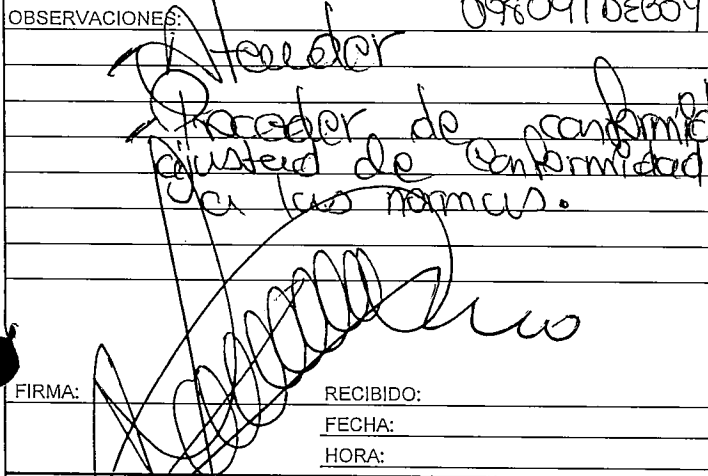 OBSERVACIONES:
Atender
Proceder de conformid
ajustad de Conformidad
a las normas.
FIRMA:
RECIBIDO:
FECHA:
HORA: